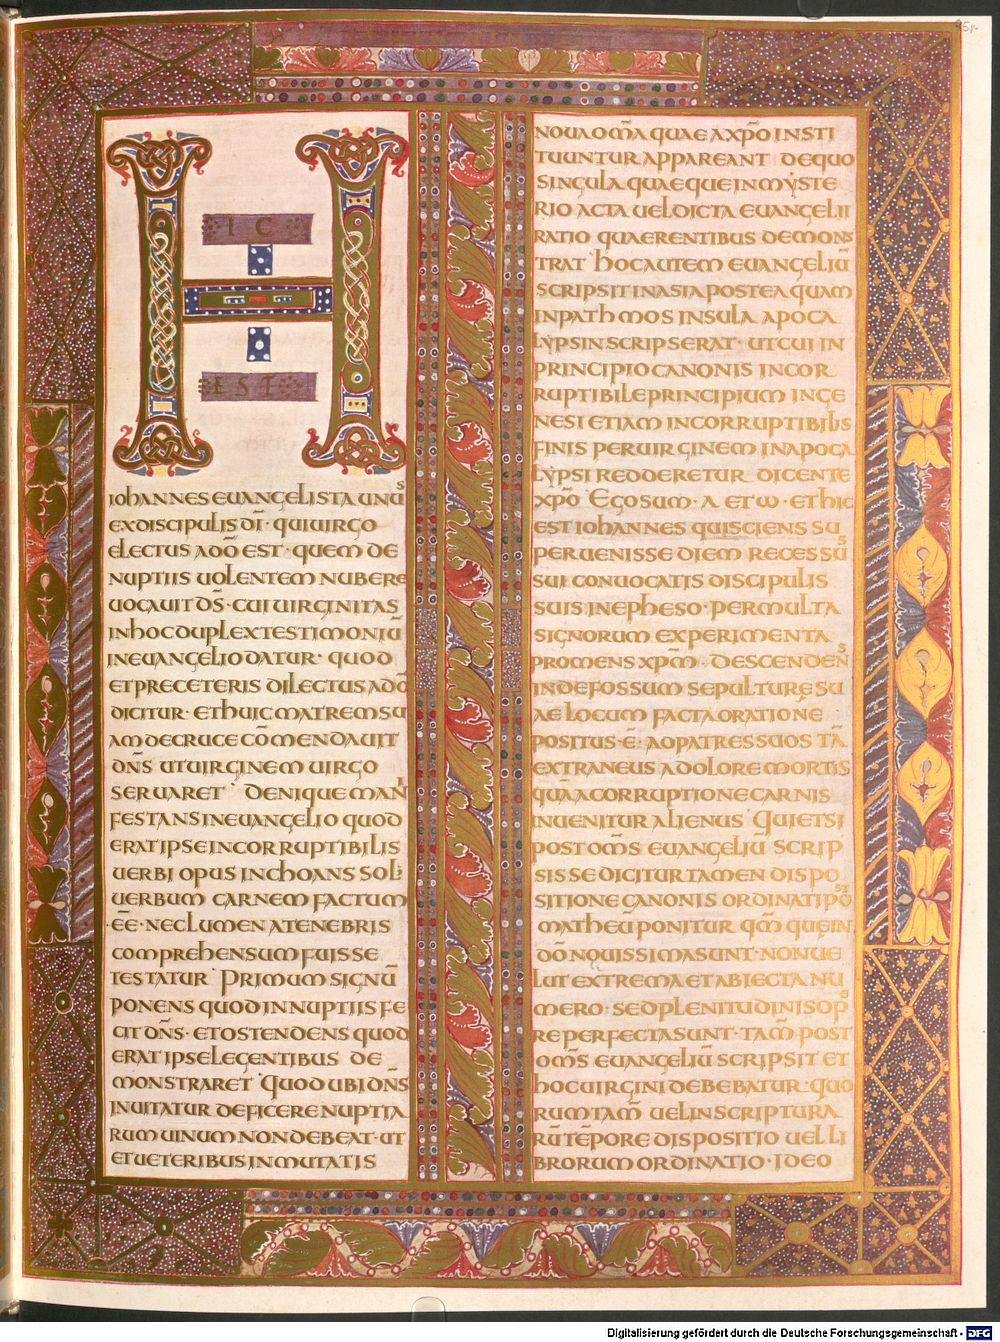 95r
HIC
EST
IOHANNES EVANGELISTA UNUS
EX DISCIPULIS DĪ · QUI VIRGO
ELECTUS A DŌ EST · QUEM DE
NUPTIIS UOLENTEM NUBERE
UOCAUIT DS̄ · CUI UIRGINITAS
IN HOC DUPLEX TESTIMONIŪ
IN EUANGELIO DATUR · QUOD
ET PRE CETERIS DILECTUS A DŌ
DICITUR · ET HUIC MATREM SU
AM DE CRUCE CŌMENDAUIT
DN̄S UT UIRGINEM UIRGO
SERUARET · DENIQUE MANI
FESTANS IN EUANGELIO QUOD
ERAT IPSE INCORRUPTIBILIS
UERBI OPUS INCHOANS SOL·
UERBUM CARNEM FACTUM
ĒĒ · NEC LUMEN A TENEBRIS
COMPREHENSUM FUISSE
TESTATUR · PRIMUM SIGNŪ
PONENS QUOD IN NUPTIIS FE
CIT DN̄S · ET OSTENDENS QUOD
ERAT IPSE LEGENTIBUS DE
MONSTRARET · QUOD UBI DN̄S
INUITATUR DEFICERE NUPTIA
RUM UINUM NON DEBEAT · UT
ET UETERIBUS INMUTATIS
NOUA OM̄A QUAE A XP̄O INSTI
TUUNTUR APPAREANT DE QUO
SINGULA QUAEQUE IN MYSTE
RIO ACTA UEL DICTA EUANGELII
RATIO QUAERENTIBUS DEMONS
TRAT · HOC AUTEM EUANGELIŪ
SCRIPSIT IN ASIA POSTEA QUAM
IN PATHMOS INSULA APOCA
LYPSIN SCRIPSERAT · UT CUI IN
PRINCIPIO CANONIS INCOR
RUPTIBILE PRINCIPIUM IN GE
NESI ETIAM INCORRUPTIBILIS
FINIS PER UIRGINEM IN APOCA
LYPSI REDDERETUR DICENTE
XP̄O · EGO SUM · A ET ω · ET HIC
EST IOHANNES QUI SCIENS SU
PERUENISSE DIEM RECESSUS
SUI CONUOCATIS DISCIPULIS
SUIS IN EPHESO · PER MULTA
SIGNORUM EXPERIMENTA
PROMENS XPM̄ · DESCENDENS
IN DEFOSSUM SEPULTURĘ SU
AE LOCUM FACTA ORATIONE
POSITUS · Ē · AD PATRES SUOS TĀ
EXTRANEUS A DOLORE MORTIS
QUĀ A CORRUPTIONE CARNIS
INUENITUR ALIENUS · QUI ETSI
POST OM̄S EUANGELIŪ SCRIP
SISSE DICITUR TAMEN DISPO
SITIONE CANONIS ORDINATI POST
MATHEŪ PONITUR QM̄ QUĘ IN
DŌ NOUISSIMA SUNT · NON UE
LUT EXTREMA ET ABIECTA NU
MERO · SED PLENITUDINIS OPUS
RE PERFECTA SUNT · TAM̄ POST
OM̄S EUANGELIŪ SCRIPSIT ET
HOC UIRGINI DEBEBATUR · QUO
RUM TAM̄ UEL IN SCRIPTURA
RŪ TĒPORE DISPOSITIO UEL LI
BRORUM ORDINATIO · IDEO
Digitalisierung gefördert durch die Deutsche Forschungsgemeinschaft - DFG